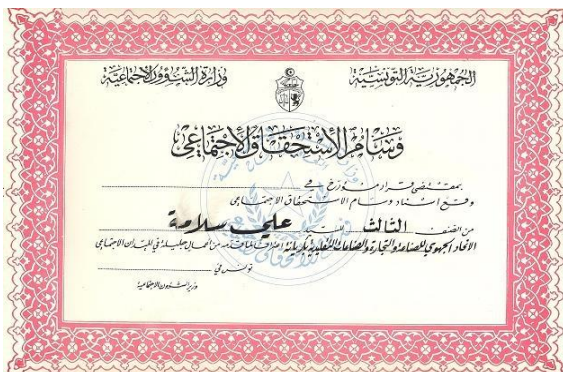 الجمهورية التونسية
وزارة الشؤون الاجتماعية
وسام الاستحقاق الاجتماعي
بمقتضى قرار مؤرخ في
وقع اسناد وسام الاستحقاق الاجتماعي
من الصنف الثالث للسيد علي سلامة
الاتحاد الجهوي للصناعة والتجارة والصناعات التقليدية بأريانة اعترافا لما قدمه من أعمال جليلة في الميدان الاجتماعي
تونس في
وزير الشؤون الاجتماعية